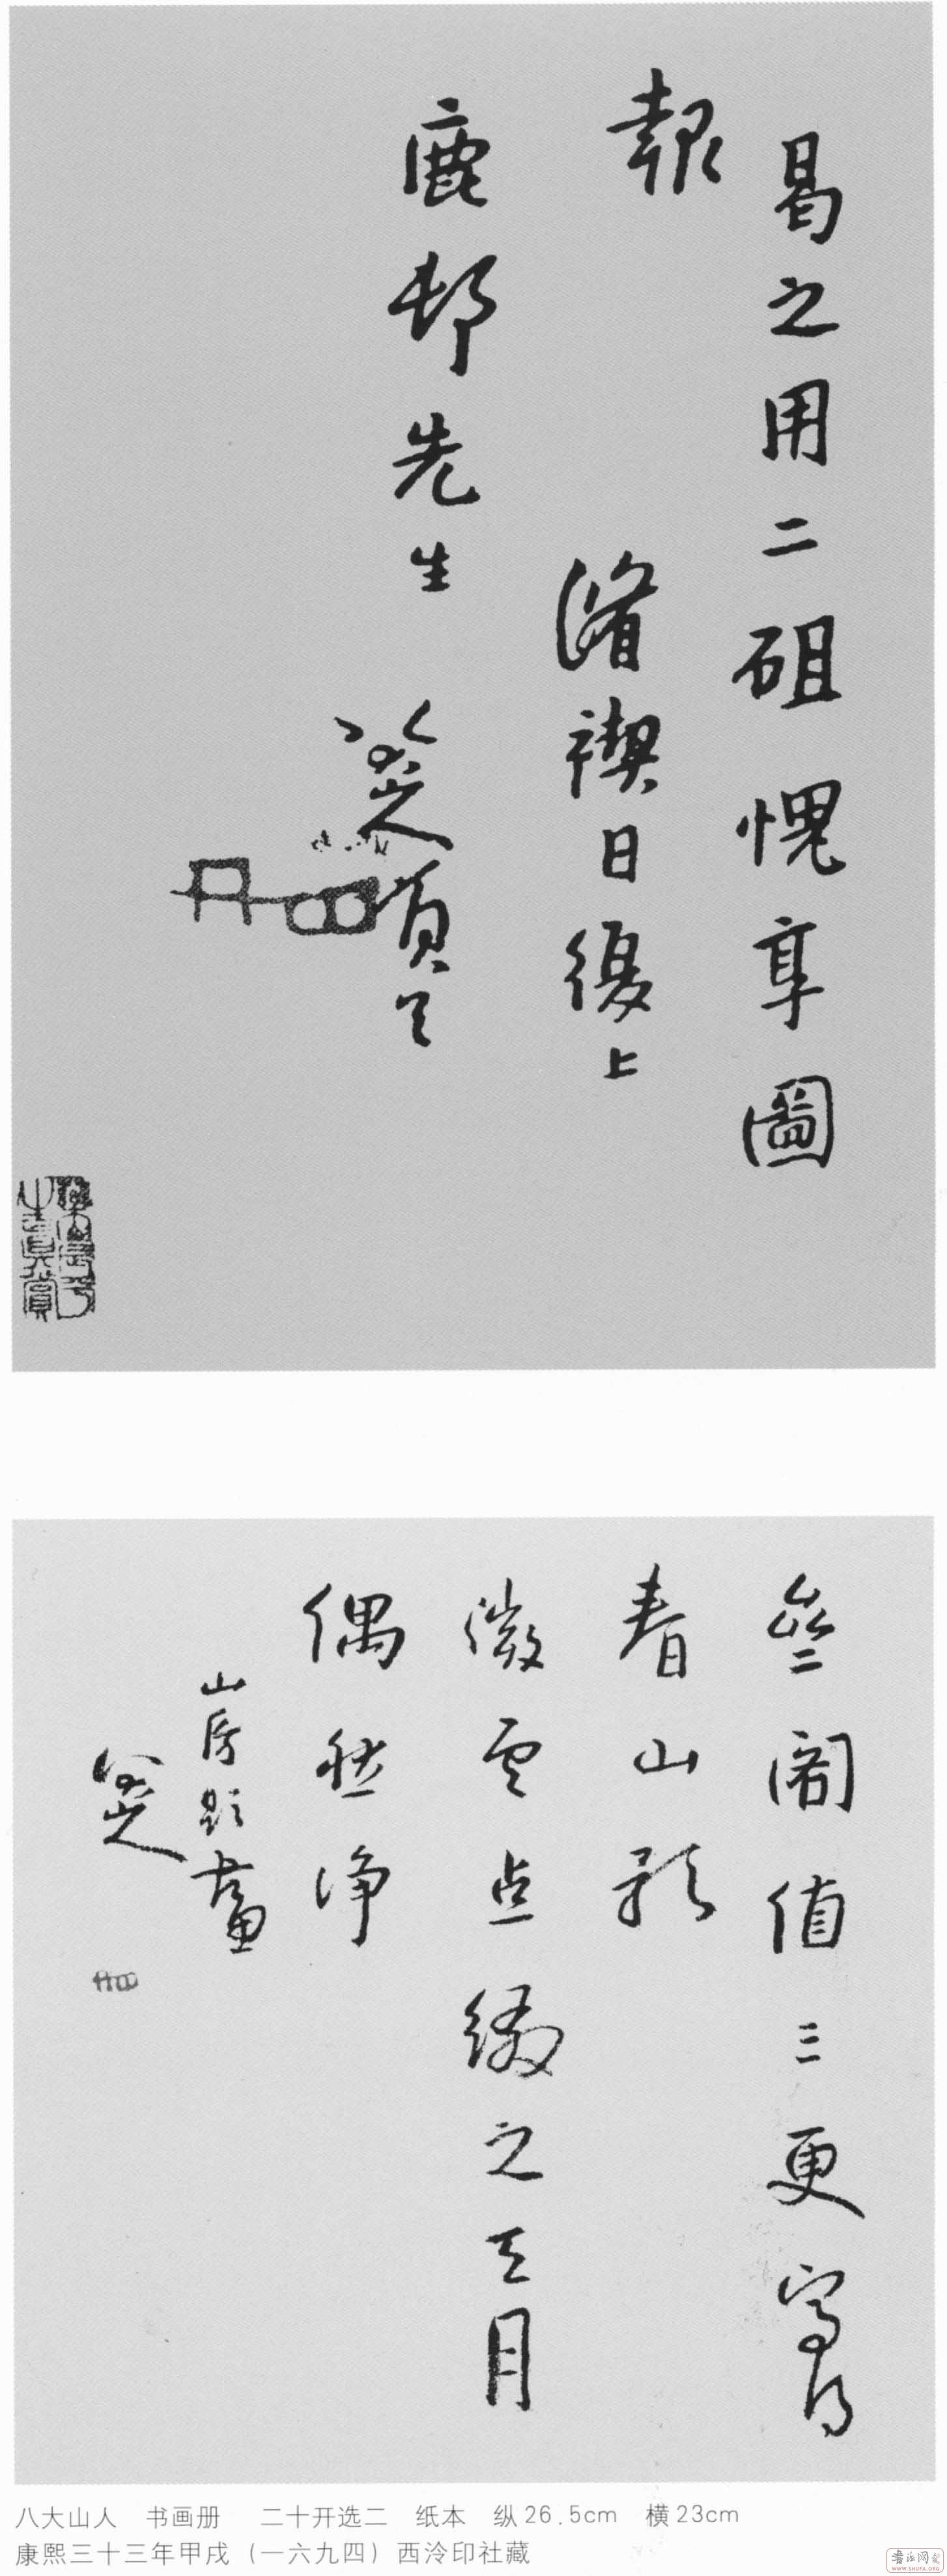 曷之用二砠愧享圖
報
潃禊日復上
鹿邨先生
八大山人頓首
叄閣值三更寫得
春山影
微雲點綴之天月
偶然淨
山房題畫
八大山人
八大山人 书画册 二十开选二 纸本 纵26.5cm 横23cm
康熙三十三年甲戌（一六九四）西泠印社藏
书法网
www.shufa.org